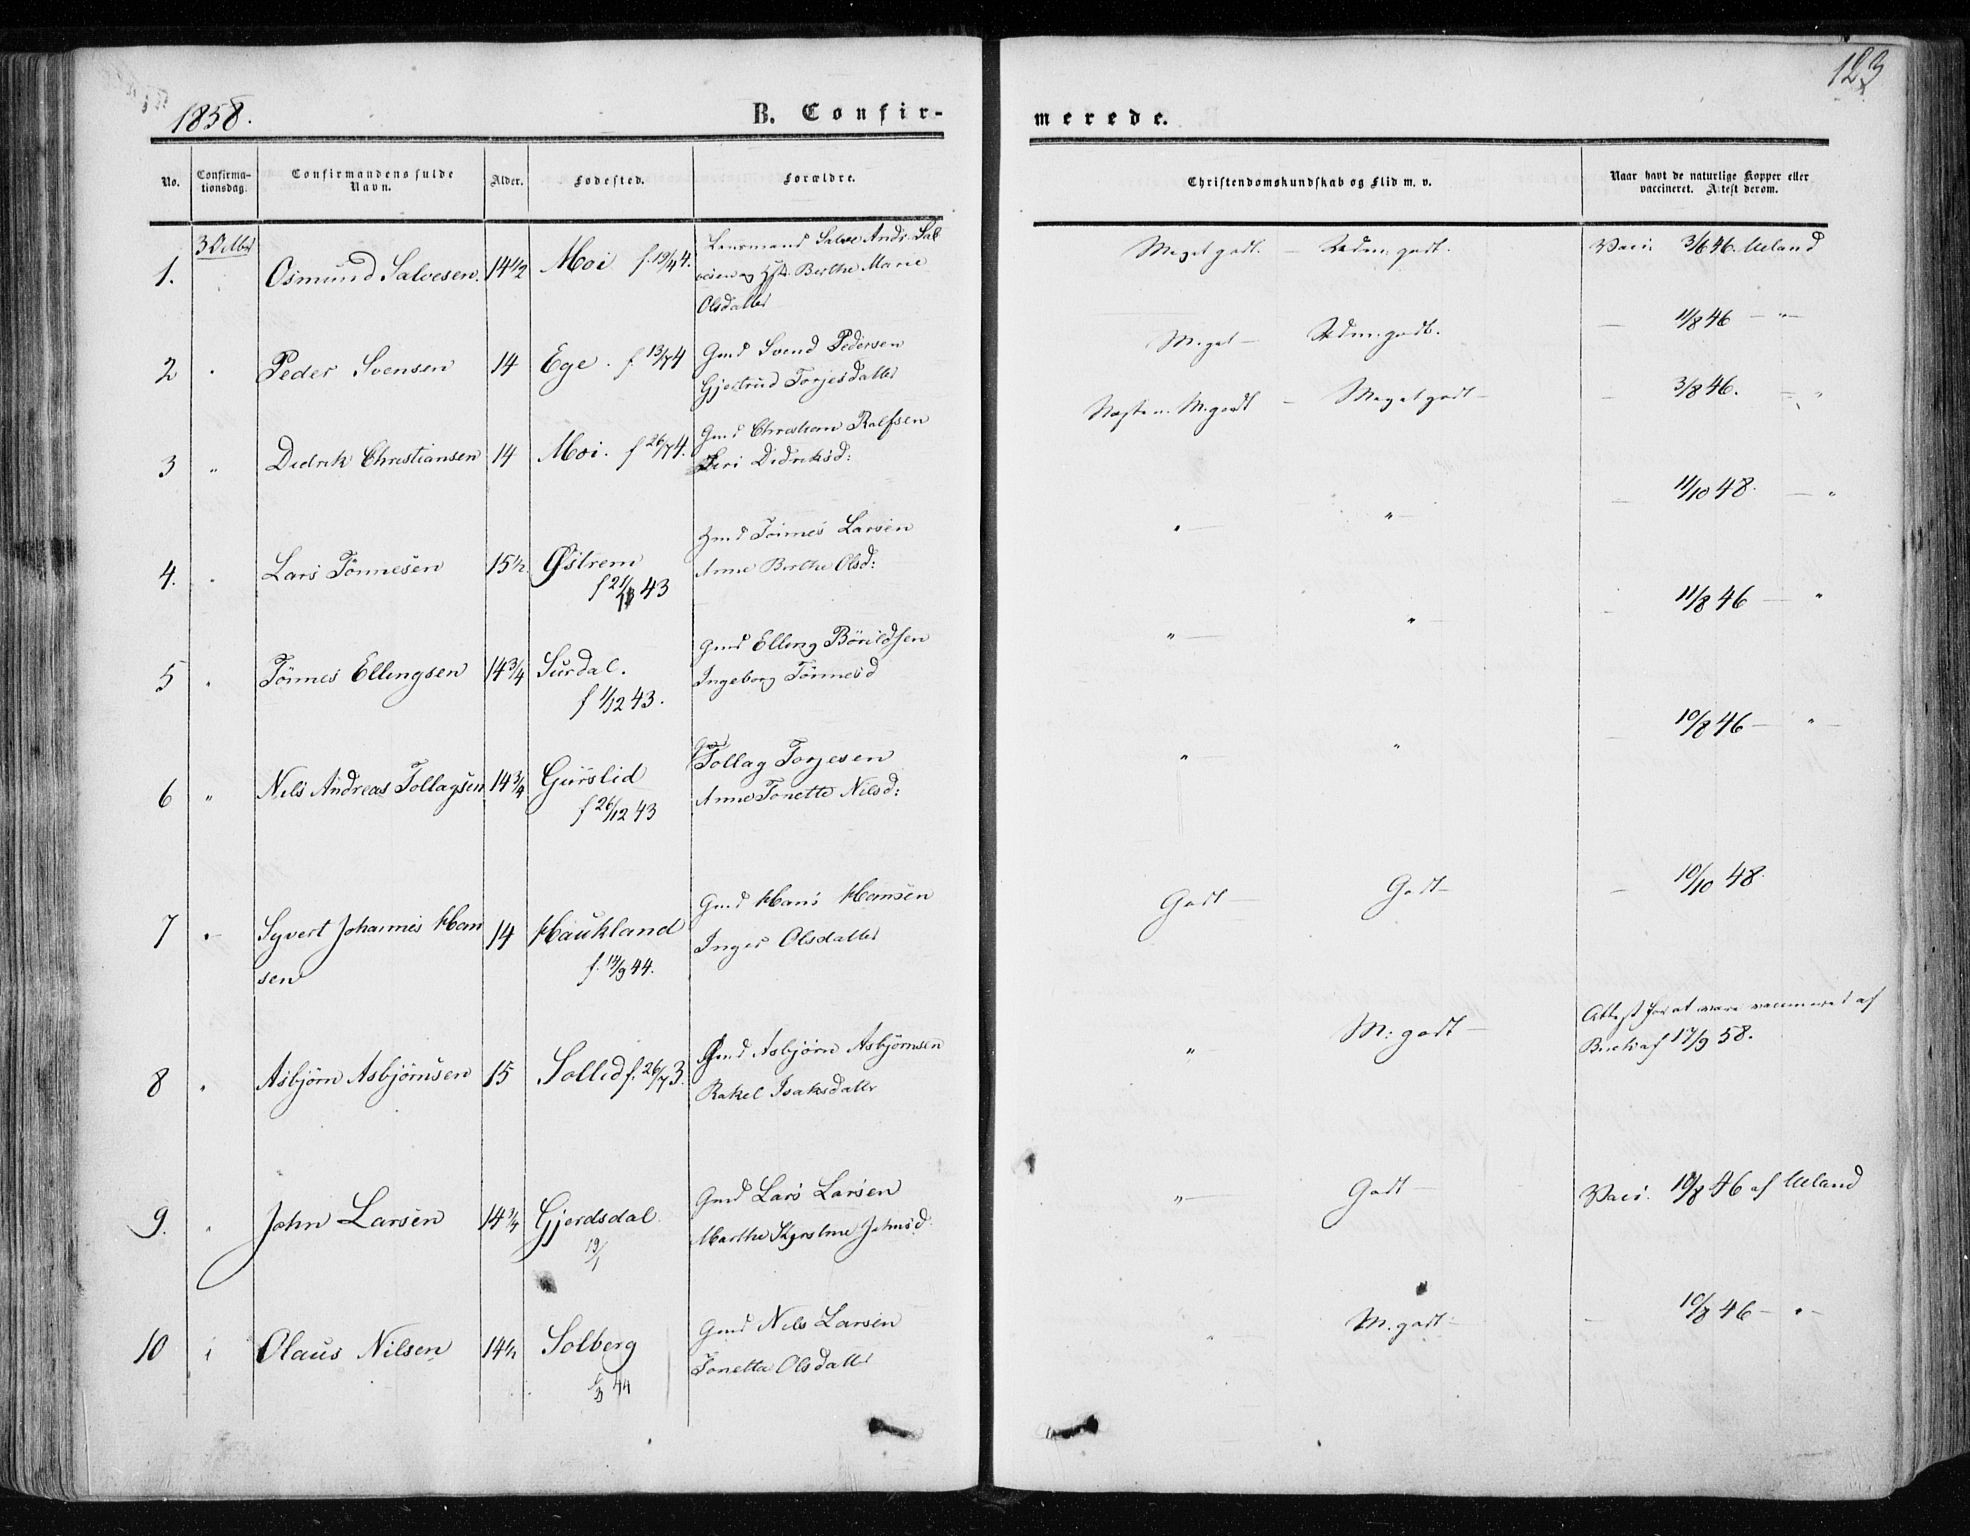 1858.
B. Confir-
No.
Confirma-
tionsdag.
Confirmandens fulde
Navn.
Alder.
Fødested.
Forældre.
3 Octbr
1. Osmund Salvesen. 14 1/2 Moi f. 19/4 4.
Lensmand Salve Andr. Sal
vesen og Hst. Berthe Marie
Olsdatter
2 " Peder Svensen 14 Ege. f 13/7 4
Gmd Svend Pedersen
Gjertrud Torjesdatter
3 " Didrik Christiansen 14 Moi. f 26/7 4.
Gmd Christian Rolfsen
Siri Didriksd:
4. " Lars Tönnesen 15 1/2. Østrem
f 21/ 43
Gmd Tönnes Larsen
Anne Berthe Olsd:
5 " Tönnes Ellingsen 14 3/4 Surdal.
f 1/12 43.
Gmd Elling Börildsen
Ingeborg Tönnesd
6 " Nils Andreas Tollagsen 14 3/4 Gurslid
f 26/12 43
Gmd
Tollag Torjesen
Anne Tonette Nilsd:
7 " Syvert Johannes Han
sen
14 Haukland
f. 14/9 44.
Gmd Hans Hansen
Inger Olsdatter
8 " Asbjörn Asbjörnsen 15 Sollid f. 26/7 3.
Gmd Asbjörn Asbjörnsen
Rakel Isaksdatter
9. " John Larsen 14 3/4 Gjerdsdal.
19/1
Gmd Lars Larsen
Marthe Kjerstine Johnsd.
10 " Olaus Nilsen 14 1/2 Solberg
/3 44
Gmd Nils Larsen
Tonette Olsdatter
123
merede.
Christendomskundskab og Flid m. v.
Naar havt de naturlige Kopper eller
vaccineret. Attest derom.
Meget godt. — godt. Vacc. 3/6 46. Ueland
Meget — godt. — 11/8 46 — "
Næsten M. godt — Meget godt — — 3/8 46. — "
" — " — — 11/10 48. — "
" — " — — 11/8 46 — "
" — " — 10/8 46 — " —
Godt — Godt — — 10/10 48.
" M: godt —
Attest for at være vaccineret af
17/9 58.
" — Godt — Vacc. 10/8 46 af Ueland
" — M. godt — — 10/8 46 — " —